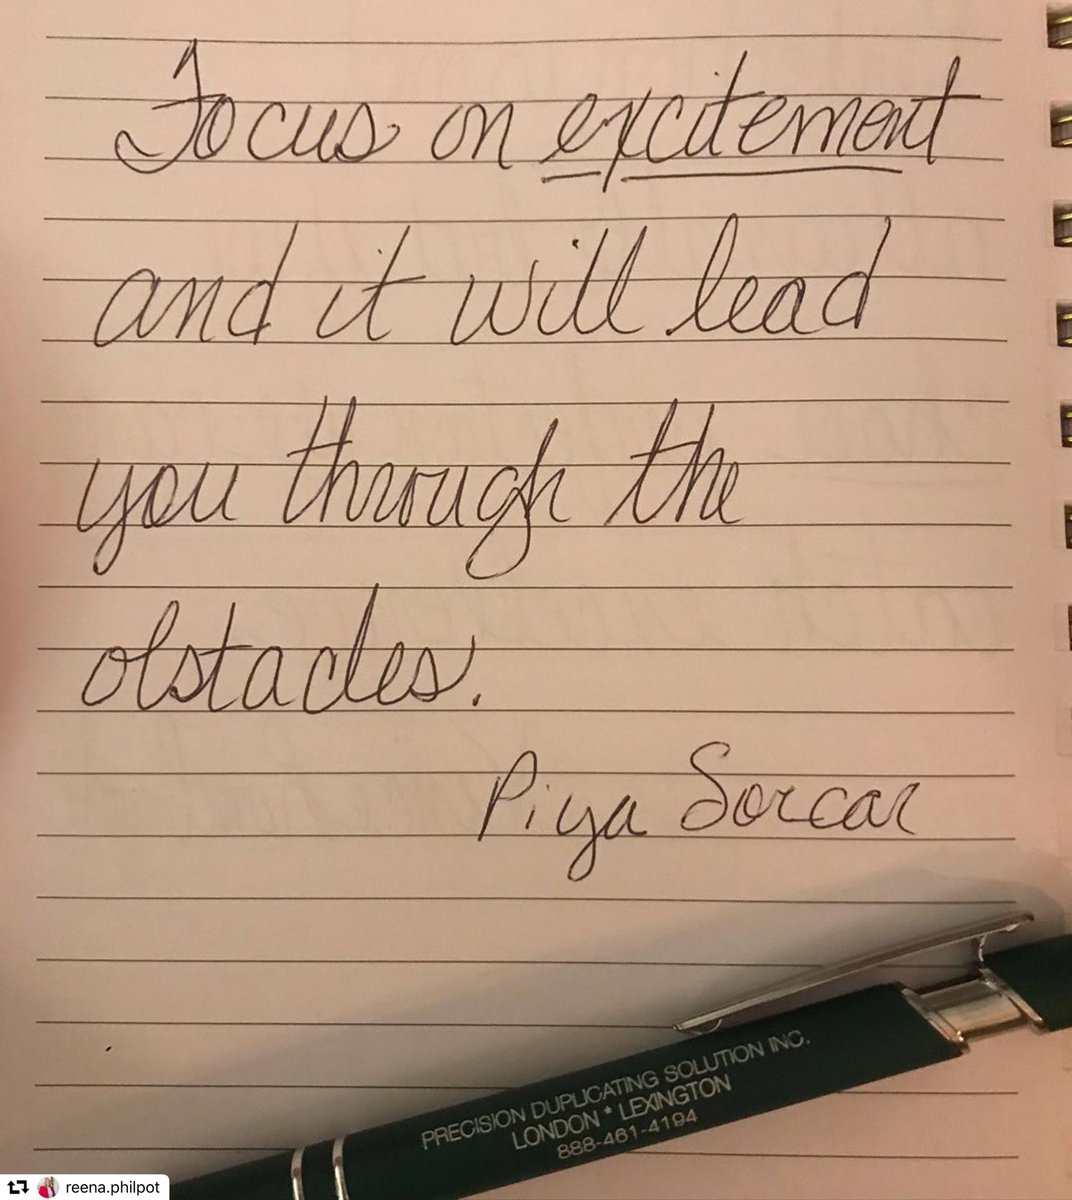 Focus on excitement
and it will lead
you through the
obstacles.
Piya Sorcar
PRECISION DUPLICATING SOLUTION INC.
LONDON * LEXINGTON
888-461-4194
reena.philpot